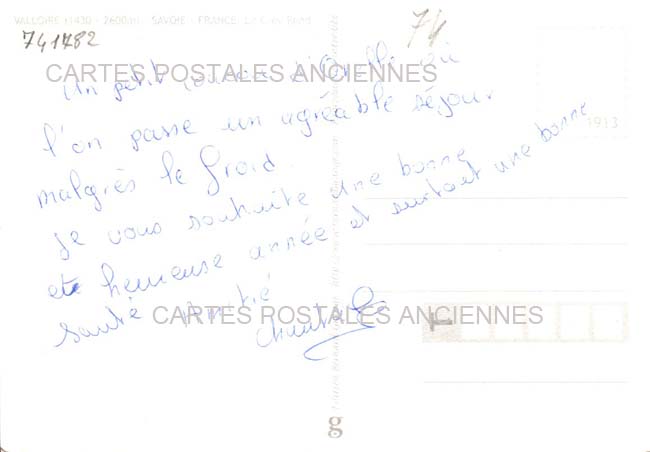 VALLOIRE (1430 - 2600m) SAVOIE - FRANCE
741782
74
CARTES POSTALES ANCIENNES
Un petit d'Orelle où
l'on passe un agréable séjour
malgrès le froid.
Je vous souhaite une bonne
et heureuse année et surtout une bonne
santé Amitié
Chantal
1913
CARTES POSTALES ANCIENNES
g